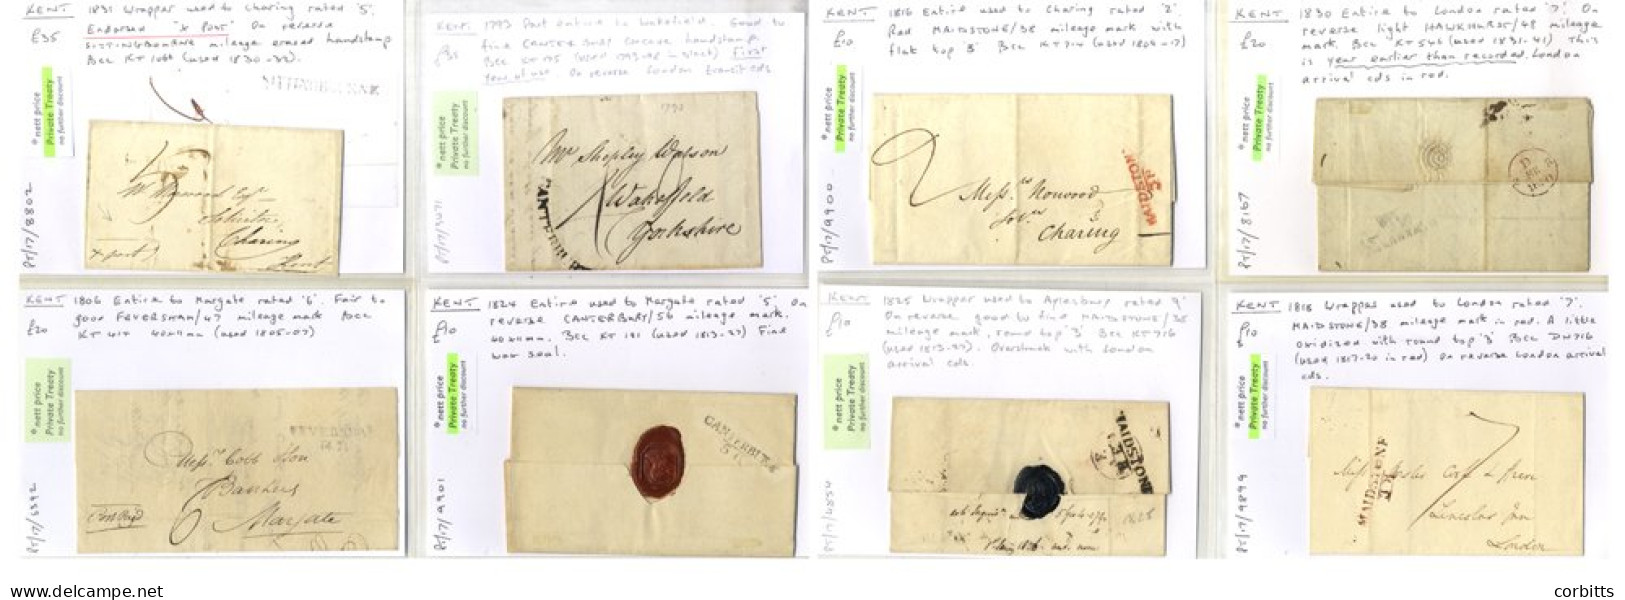 KENT 1831 Wrapper used to Charing rated '5'.
£35 Endorsed "X Post" On reverse
SITTINGBOURNE mileage erased handstamp
BCC KT 1066 (used 1830-33).
* nett price
Private Treaty
no further discount
PT/17/8802
SITTINGBOURNE
Esqr
Solicitor
Charing
Kent
X post
KENT. 1793 Post entire to Wakefield. Good to
£35 fine CANTERBURY concave handstamp
First
year of use On reverse London transit cds
* nett price
Private Treaty
no further discount
1793
Mr Shepley Watson
Wakefield
Yorkshire
CANTERBU
KENT 1816 Entire used to Charing rated '2'.
£10 Red MAIDSTONE/38 mileage mark with
flat top '3' BCC KT714 (used 1804-17)
* nett price
Private Treaty
no further discount
PT/17/9900
2
Messrs Norwood
Charing
MAIDSTONE
KENT 1830 Entire to London rated '7'. On
£20 reverse light HAWKHURST/48 mileage
mark. BCC KT 545 (used 1831-41) This
is year earlier than recorded. London
arrival cds in red.
* nett price
Private Treaty
no further discount
PT/17/8167
1830
KENT 1806 Entire to Margate rated '6'. Fair to
£20 good FEVERSHAM/47 mileage mark BCC
KT 414 40x11mm (used 1805-07)
* nett price
Private Treaty
no further discount
PT/17/5392
FEVERSHAM
Messrs Cobb & Son
Bankers
Margate
Post Paid
6
KENT 1824 Entire used to Margate rated '5'. On
£10 reverse CANTERBURY/56 mileage mark.
40x11mm. BCC KT 191 (used 1813-27) Fine
wax seal.
* nett price
Private Treaty
no further discount
PT/17/9901
CANTERBURY
KENT 1825 Wrapper used to Aylesbury rated '9'
£10 On reverse good to fine MAIDSTONE/38
mileage mark, round top '3' BCC KT716
(used 1813-27). Overstruck with London
arrival cds.
* nett price
Private Treaty
no further discount
PT/17/4854
MAIDSTONE
1825
KENT 1818 Wrapper used to London rated '7'.
£10 MAIDSTONE/38 mileage mark in red. A little
oxidized with round top '3' BCC DN716
(used 1817-20 in red) On reverse London arrival
cds.
* nett price
Private Treaty
no further discount
PT/17/9899
MAIDSTONE
7
Lincolns Inn
London
corbitts